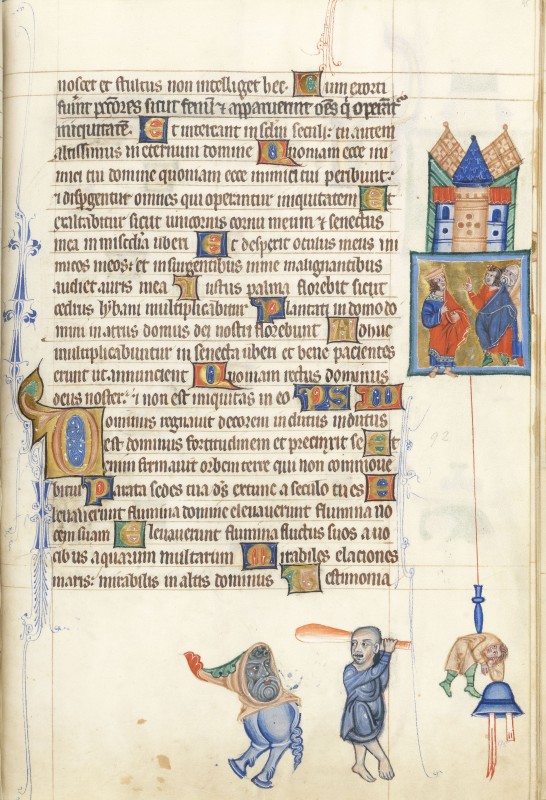 noscet et stultus non intelliget hec. Cum exorti
fuerint peccatores sicut fenum & apparuerint oms q̇ operant
iniquitatē. Et intereant in sclm̄ seculi: tu autem
altissimus in eternum domine Quoniam ecce ini
mici tui domine quoniam ecce inimici tui peribunt:
& dispergentur omnes qui operantur iniquitatem Et
exaltabitur sicut unicornis cornu meum & senectus
mea in misericordia uberi Et despexit oculus meus ini
micos meos: et in insurgentibus in me malignantibus
audiet auris mea Iustus palma florebit sicut
cedrus lybani multiplicabitur Plantati in domo do
mini in atriis domus dei nostri florebunt Adhuc
multiplicabuntur in senecta uberi et bene pacientes
erunt ut annuncient Quoniam rectus dominus
deus noster: & non est iniquitas in eo PSM
Dominus regnavit decorem indutus indutus
est dominus fortitudinem et precinxit se Et
enim firmavit orbem terre qui non commove
bitur Parata sedes tua ds ex tunc a seculo tu es E
levaverunt flumina domine elevaverunt flumina vo
cem suam Elevaverunt flumina fluctus suos a vo
cibus aquarum multarum Mirabiles elaciones
maris: mirabilis in altis dominus Testimonia
92